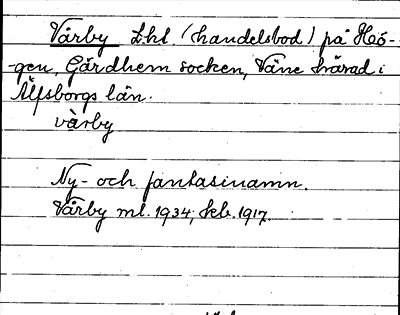 Vårby Lhl. (handelsbod) på Hö-
gen, Gärdhem socken, Väne härad i
Älfsborgs län.
vàrby
Ny- och fantasinamn.
Vårby ml. 1934; kb. 1917.